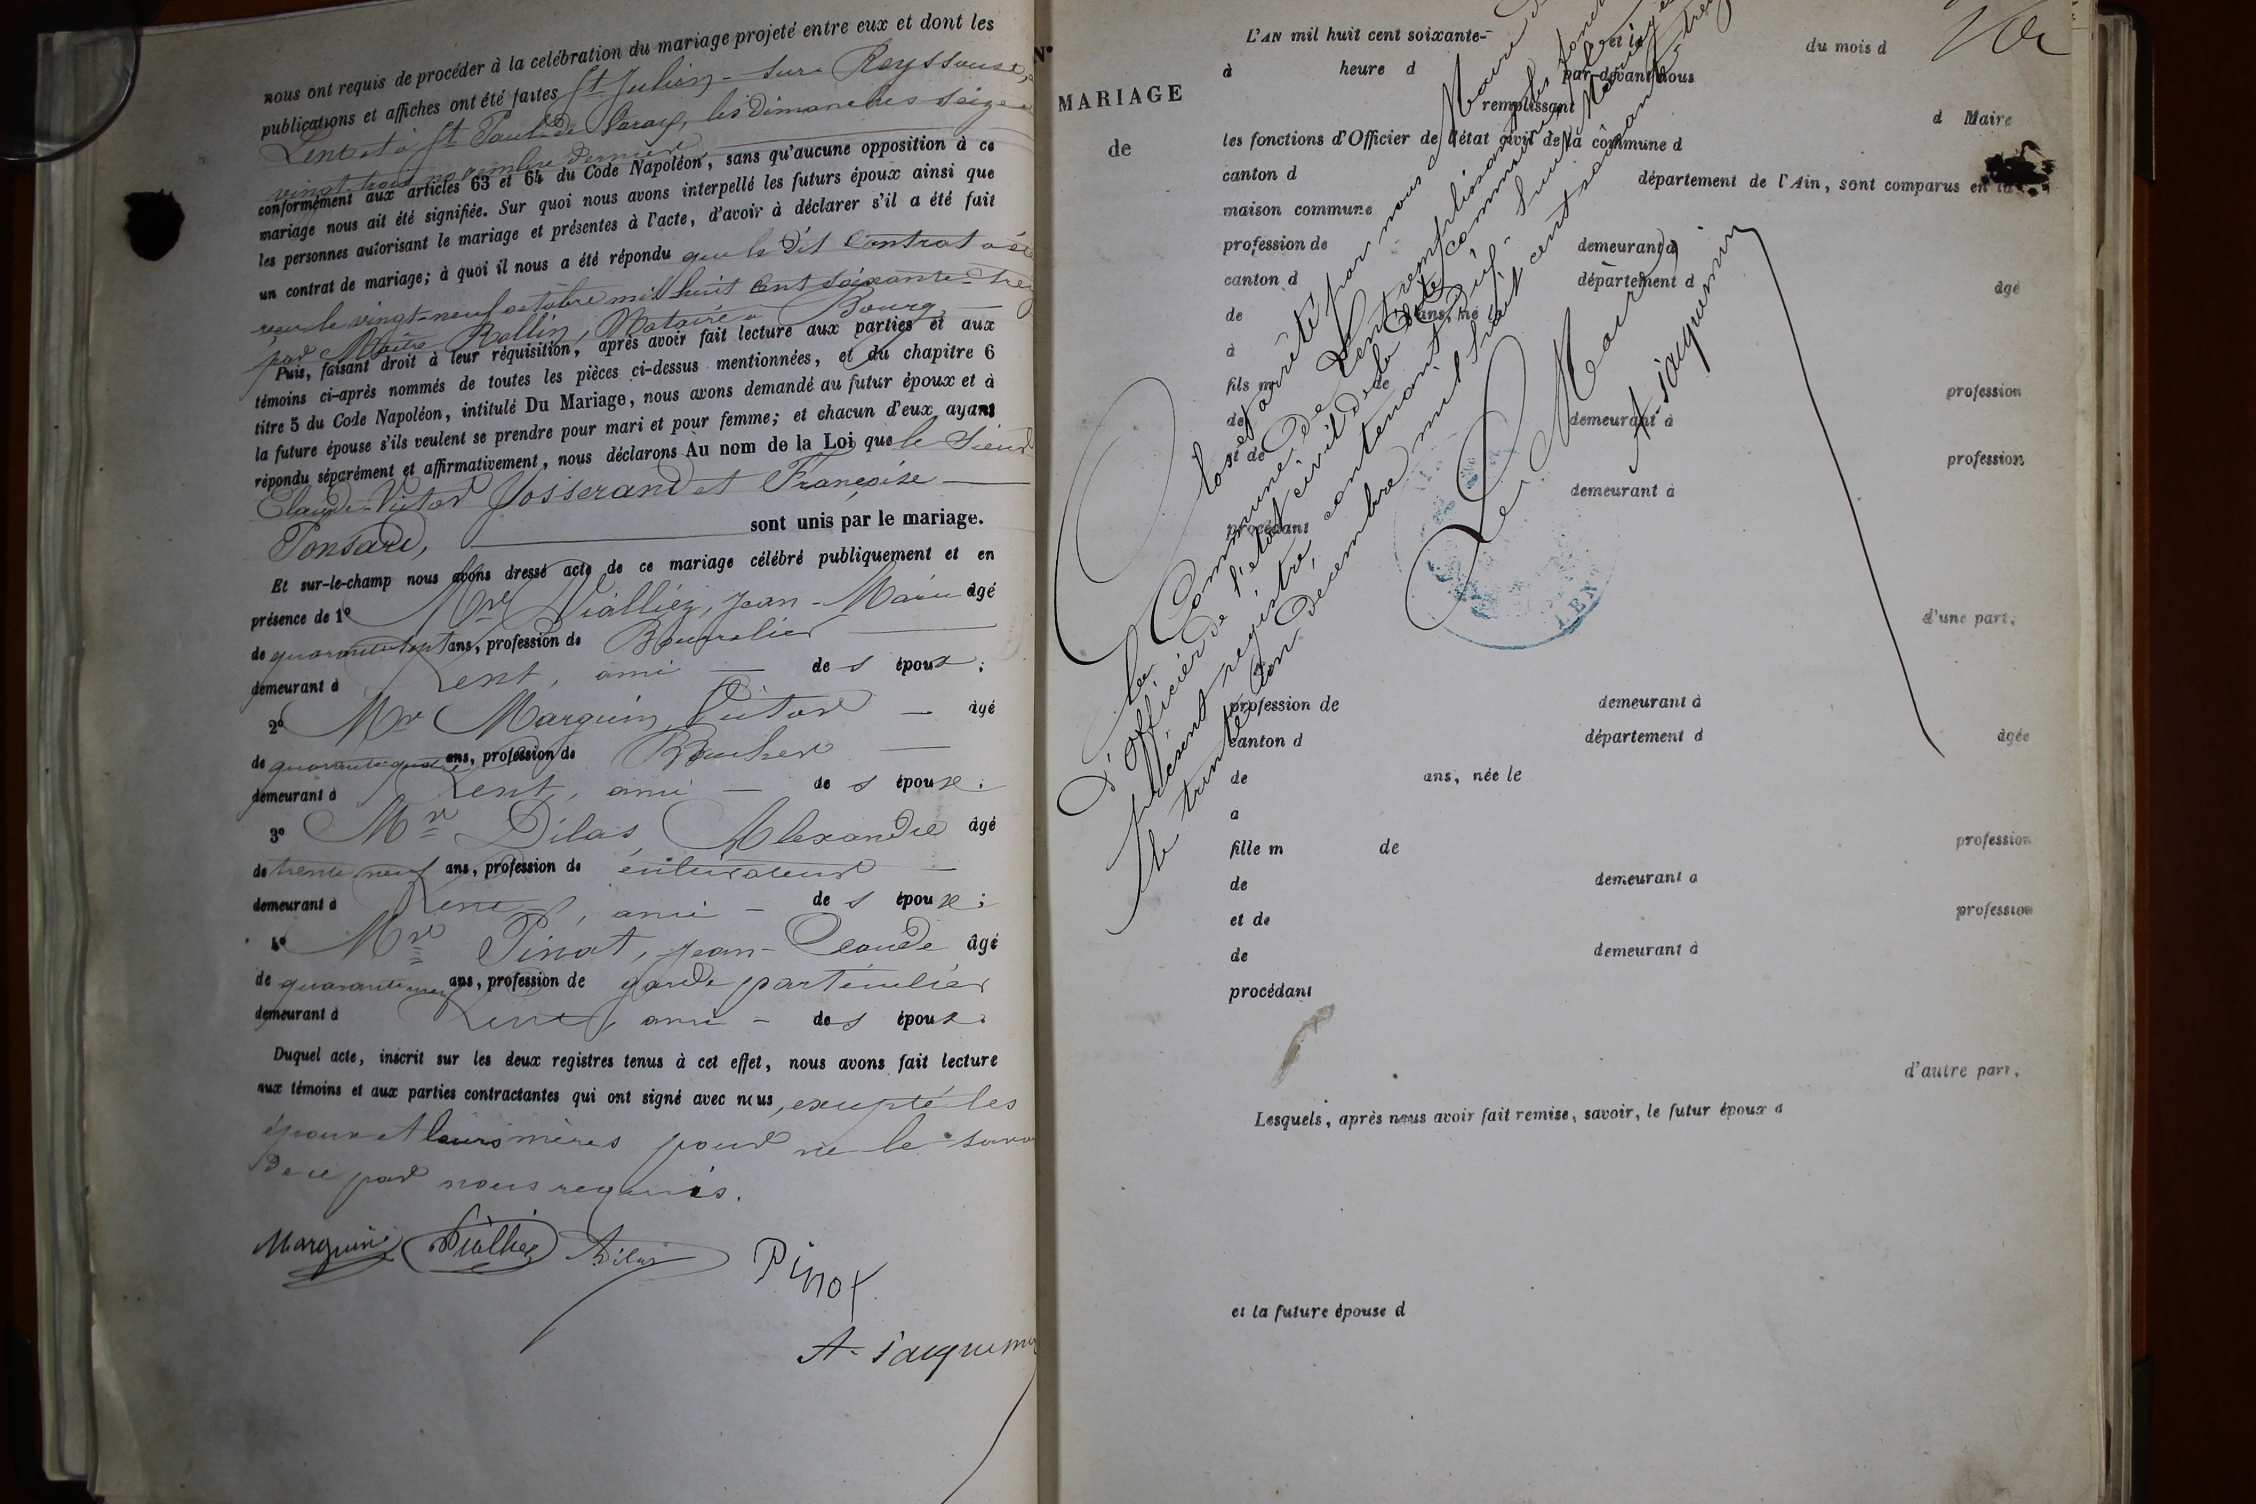 nous ont requis de procéder à la celébration du mariage projeté entre eux et dont les
publications et affiches ont été faites St Julien-sur-Reyssouse,
Lent et à St Paul de Varax, les Dimanches seize et
vingt-trois novembre dernier
conformément aux articles 63 et 64 du Code Napoléon, sans qu'aucune opposition à ce
mariage nous ait été signifiée. Sur quoi nous avons interpellé les futurs époux ainsi que
les personnes autorisant le mariage et présentes à l'acte, d'avoir à déclarer s'il a été fait
un contrat de mariage; à quoi il nous a été répondu que le dit Contrat a été
reçu le vingt-neuf octobre mil huit cent soixante-treize
par Maître Rollin, Notaire à Bourg
Puis, faisant droit à leur réquisition, après avoir fait lecture aux parties et aux
témoins ci-après nommés de toutes les pièces ci-dessus mentionnées, et du chapitre 6
titre 5 du Code Napoléon, intitulé Du Mariage, nous avons demandé au futur époux et à
la future épouse s'ils veulent se prendre pour mari et pour femme; et chacun d'eux ayant
répondu séparément et affirmativement, nous déclarons Au nom de la Loi que le Sieur
Claude-Victor Josserand et Françoise
Ponsard, sont unis par le mariage.
Et sur-le-champ nous avons dressé acte de ce mariage célébré publiquement et en
présence de 1º Mr Vialliez, Jean-Marie âgé
de quarante sept ans, profession de Bourrelier
demeurant à Lent, ami de s époux;
2º Mr Marguin Victor âgé
de quarante quatre ans, profession de Boucher
demeurant à Lent, ami de s époux;
3º Mr Dilas, Alexandre âgé
de trente neuf ans, profession de cultivateur
demeurant à Lent, ami de s époux;
4º Mr Pinot, Jean-Claude âgé
de quarante neuf ans, profession de garde particulier
demeurant à Lent, ami de s époux.
Duquel acte, inscrit sur les deux registres tenus à cet effet, nous avons fait lecture
aux témoins et aux parties contractantes qui ont signé avec nous, excepté les
époux et leurs mères pour ne le savoir
de ce par nous requis.
Marguin Vialliez Dilas Pinot
A. Jacquemin
Nº
MARIAGE
de
L'AN mil huit cent soixante-
et le
du mois d
à heure d par-devant nous
remplissant
d Maire
les fonctions d'Officier de l'état civil de la commune d
canton d département de l'Ain, sont comparus en la
maison commune
profession de demeurant à
canton d département d
âgé
de ans, né l
à
fils m de
profession
de demeurant à
et de
profession
demeurant à
procédant
d'une part.
profession de demeurant à
canton d département d
âgée
de ans, née le
a
fille m de
profession
de demeurant a
et de
profession
de demeurant à
procédant
d'autre part.
Lesquels, après nous avoir fait remise, savoir, le futur époux d
et la future épouse d
Clos et arrêté par nous Maire de
la Commune de Lent remplissant les fonctions
d'officier de l'état civil de la dite commune, le
présent registre, contenant dix-huit Mariages
le trente-un Décembre mil huit cent soixante-treize
Le Maire,
A. Jacquemin
LENT